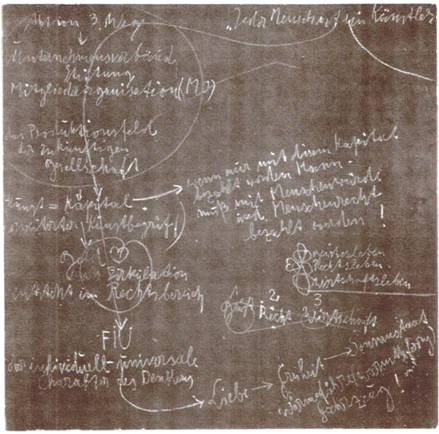 Aktion 3. Weg
„Jeder Mensch ist ein Künstler
Unternehmensverband
Stiftung
Mitgliederorganisation (MO)
das Produktionsfeld
der zukünftigen
Gesellschaft
Kunst = Kapital
erweiterter Kunstbegriff
wenn nur mit diesem Kapital
bezahlt werden kann
muß mit Menschenwürde
und Menschenrecht
bezahlt werden!
Geld
Zirkulation
entsteht im Rechtsbereich
Geistesleben
Rechtsleben
Wirtschaftsleben
2 3
Geist Recht Wirtschaft
FIU
der individuell universale
Charakter des Denkens
Liebe
Freiheit